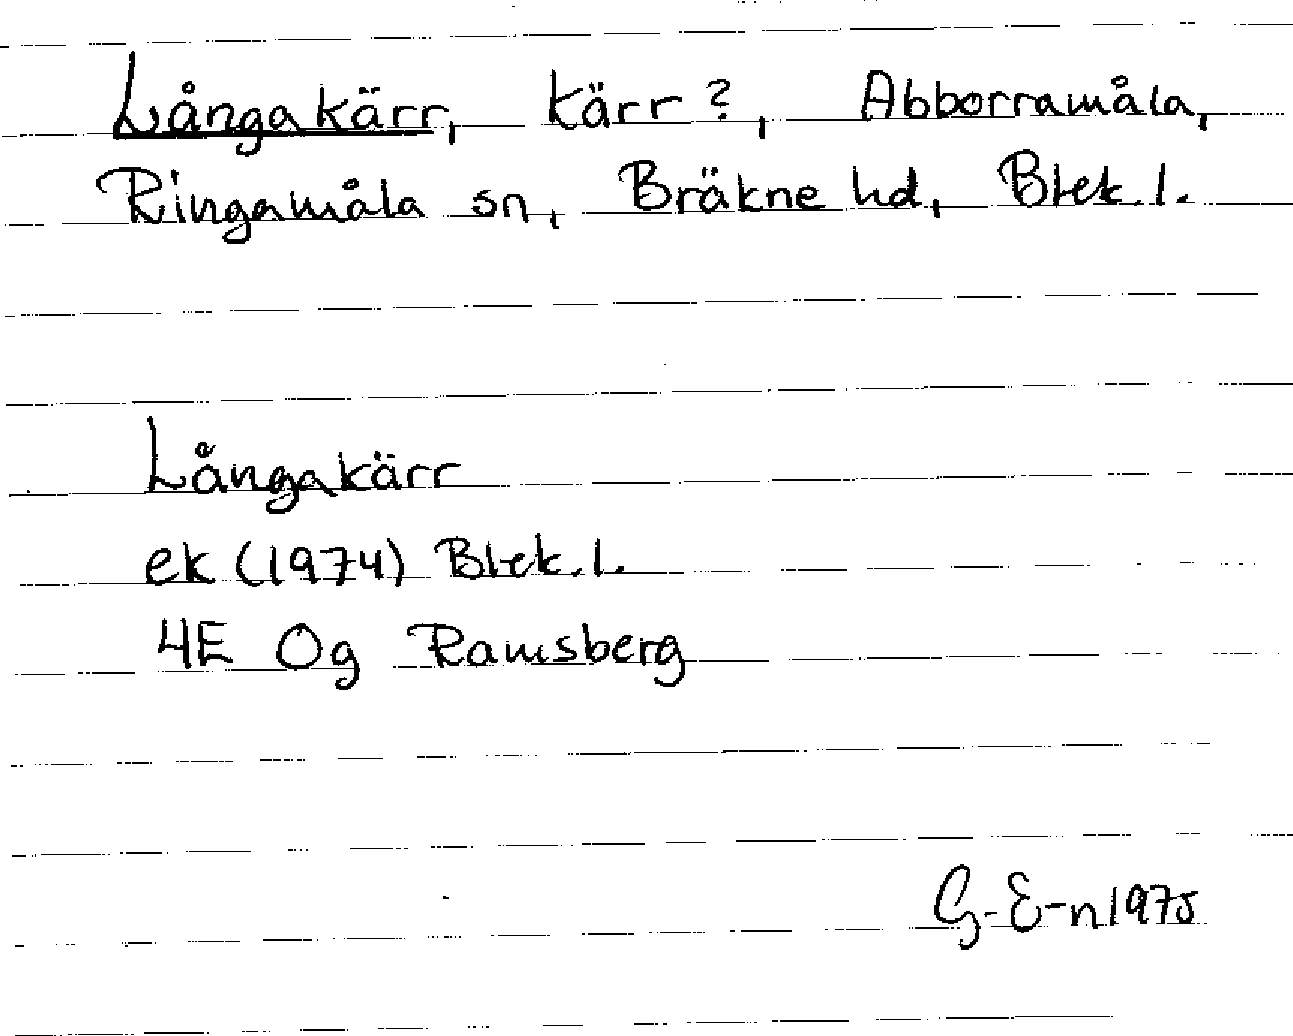 Långakärr, kärr?, Abborramåla,
Ringamåla sn, Bräkne hd, Blek. l.
Långakärr
ek (1974) Blek. l.
4E Og Ramsberg
G. E-n 1975